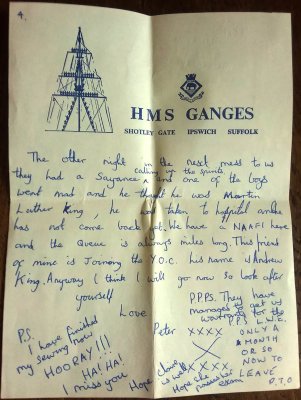 4.
HMS GANGES
SHOTLEY GATE IPSWICH SUFFOLK
The other night in the next mess to us
they had a Sayance calling up the spirits and one of the boys
went mad and he thought he was Martin
Luther King, he was taken to hospital and he
has not come back yet. We have a NAAFI here
and the Queue is always miles long. This friend
of mine is Joining the Y.O.C. his name is Andrew
King. Anyway I think I will go now so look after
yourself
Love
Peter XXXX
XXXX
P.S.
I have finished
my sewing now
HOORAY!!!
HA! HA!
I miss you
PPPS. They have
managed to get us
warrants for the
P.P.S. L.W.E.
ONLY A
MONTH
OR SO
NOW TO
LEAVE
Hope
is well
Hope she has
passed her
exam
P.T.O